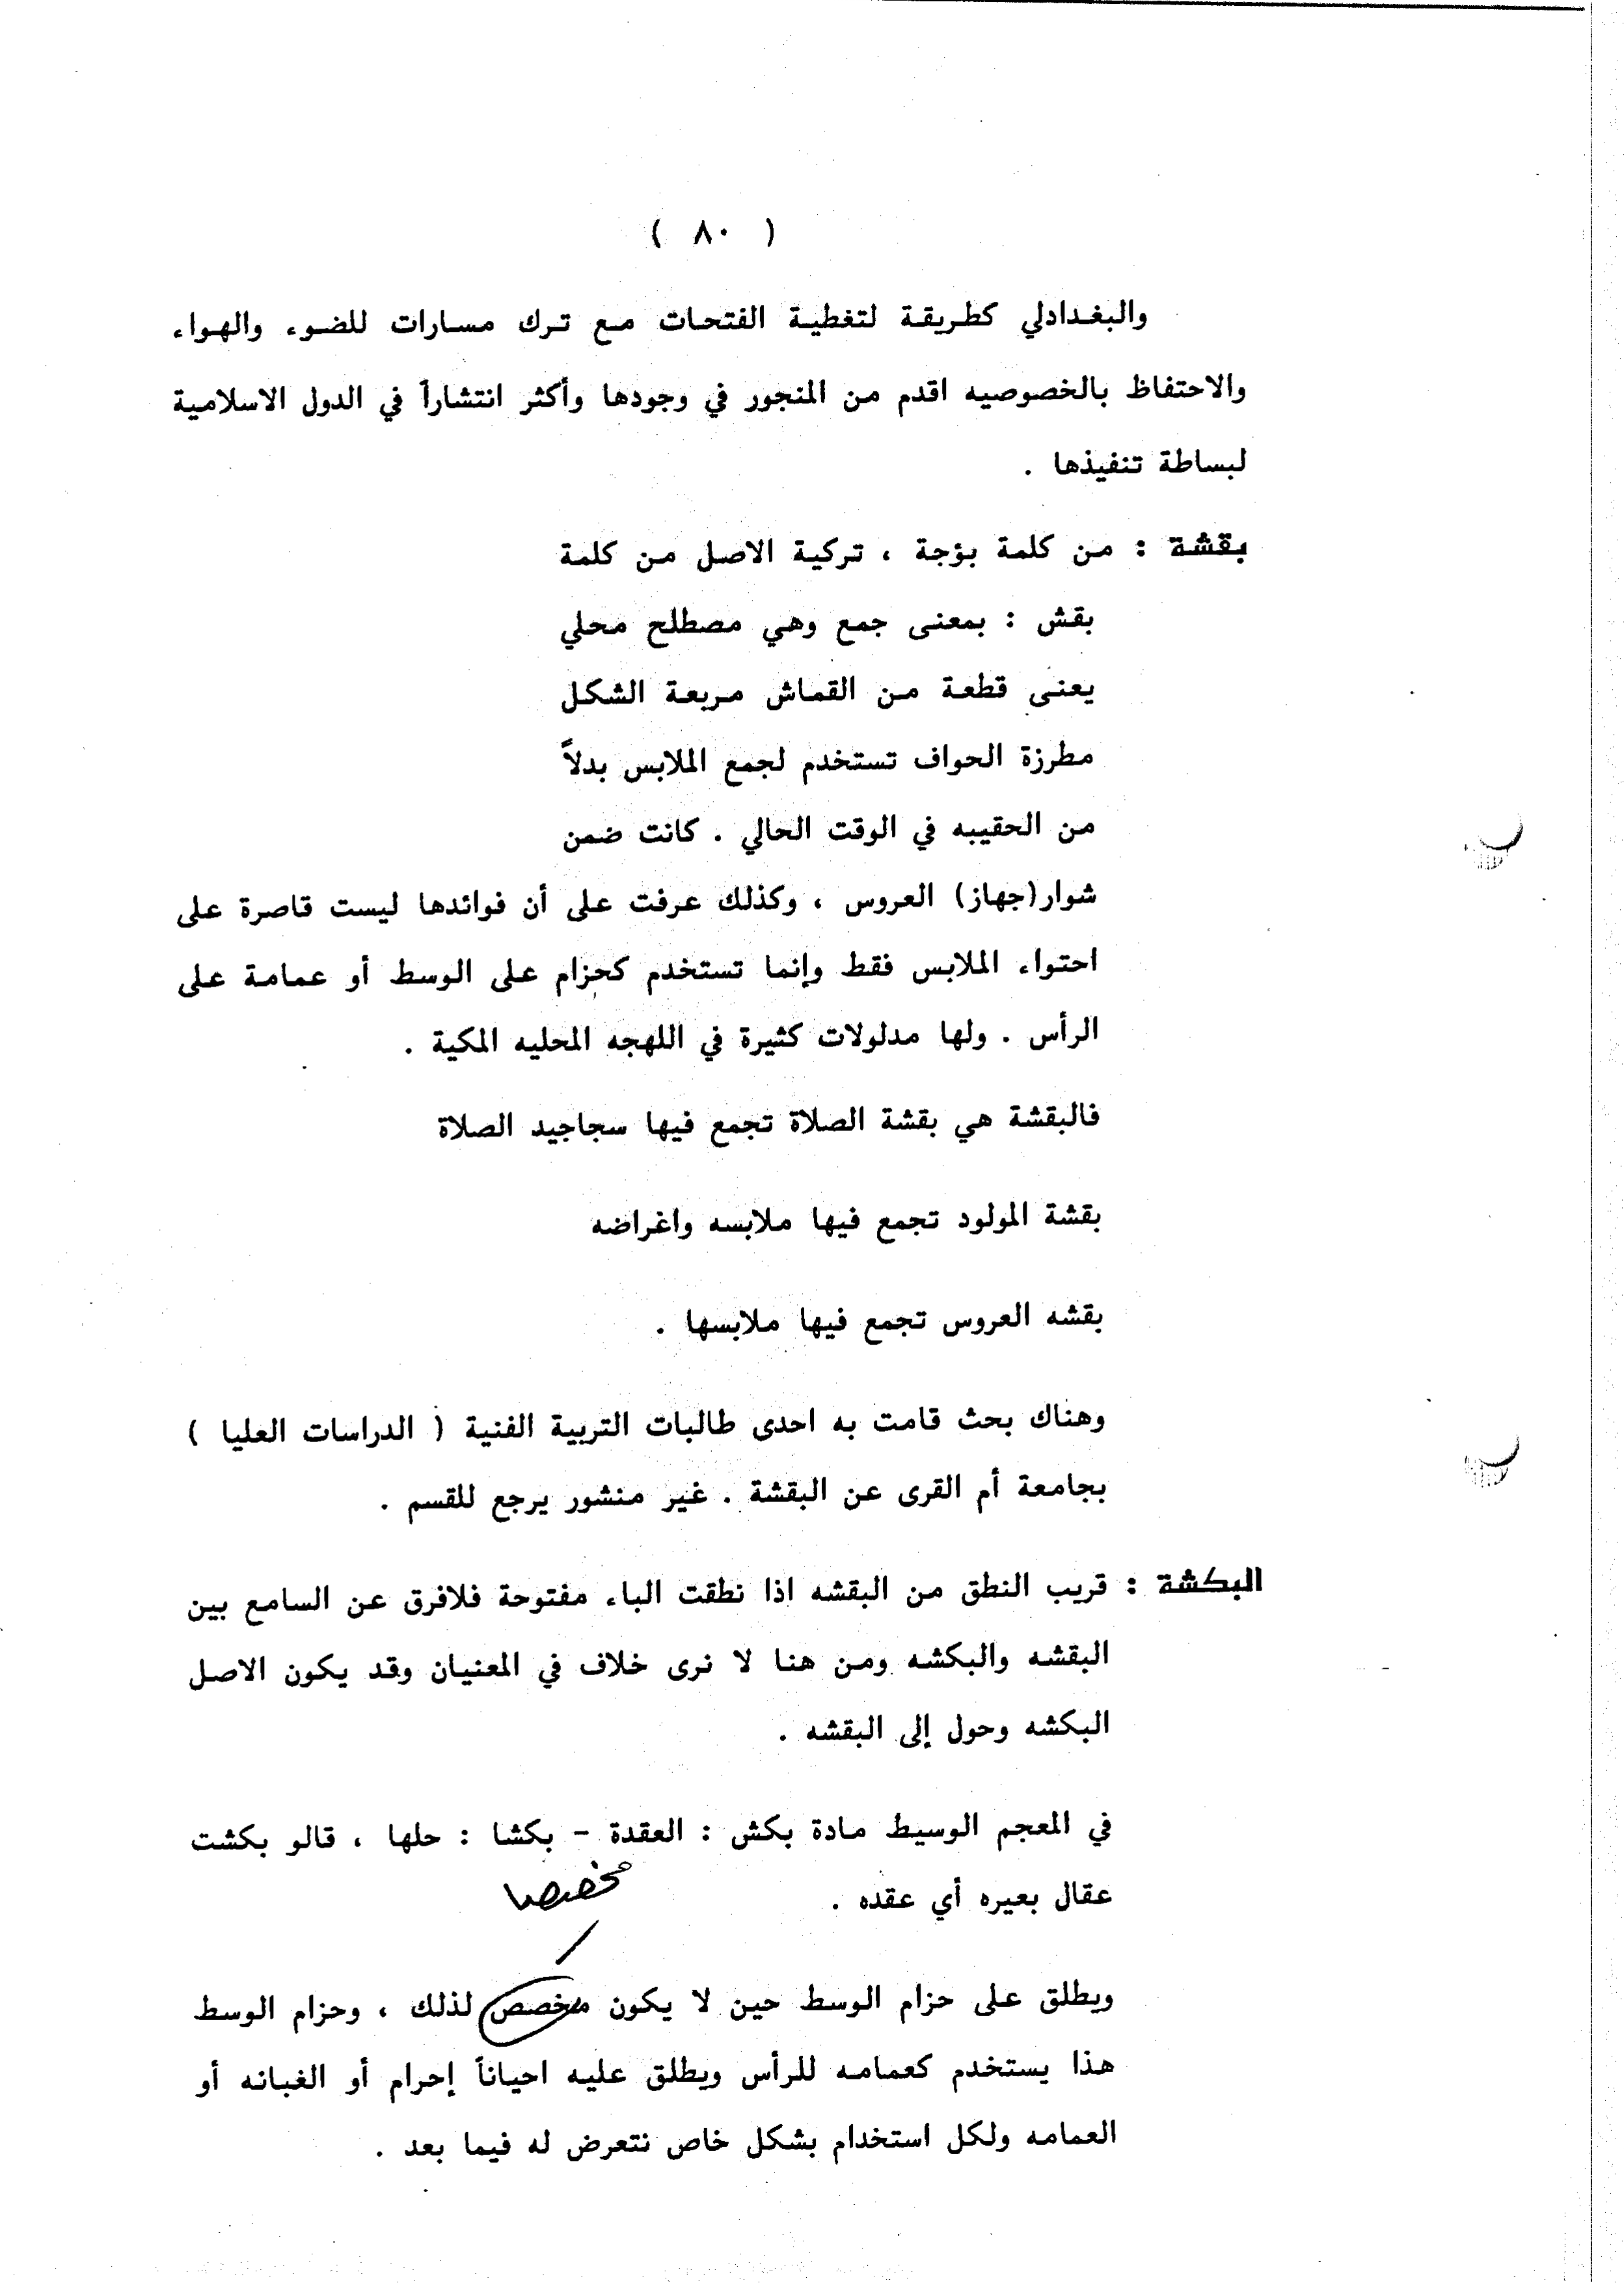 ( ٨٠ )
والبغدادلي كطريقة لتغطية الفتحات مع ترك مسارات للضوء والهواء
والاحتفاظ بالخصوصيه اقدم من المنجور في وجودها وأكثر انتشاراً في الدول الاسلامية
لبساطة تنفيذها .
بقشة : من كلمة بؤجة ، تركية الاصل من كلمة
بقش : بمعنى جمع وهي مصطلح محلي
يعنى قطعة من القماش مربعة الشكل
مطرزة الحواف تستخدم لجمع الملابس بدلاً
من الحقيبه في الوقت الحالي . كانت ضمن
شوار(جهاز) العروس ، وكذلك عرفت على أن فوائدها ليست قاصرة على
احتواء الملابس فقط وإنما تستخدم كحزام على الوسط أو عمامة على
الرأس . ولها مدلولات كثيرة في اللهجه المحليه المكية .
فالبقشة هي بقشة الصلاة تجمع فيها سجاجيد الصلاة
بقشة المولود تجمع فيها ملابسه واغراضه
بقشه العروس تجمع فيها ملابسها .
وهناك بحث قامت به احدى طالبات التربية الفنية ( الدراسات العليا )
بجامعة أم القرى عن البقشة . غير منشور يرجع للقسم .
البكشة : قريب النطق من البقشه اذا نطقت الباء مفتوحة فلافرق عن السامع بين
البقشه والبكشه ومن هنا لا نرى خلاف في المعنيان وقد يكون الاصل
البكشه وحول إلى البقشه .
في المعجم الوسيط مادة بكش : العقدة - بكشا : حلها ، قالو بكشت
عقال بعيره أي عقده .
مخصصا
ويطلق على حزام الوسط حين لا يكون مخصص لذلك ، وحزام الوسط
هذا يستخدم كعمامه للرأس ويطلق عليه احياناً إحرام أو الغبانه أو
العمامه ولكل استخدام بشكل خاص نتعرض له فيما بعد .